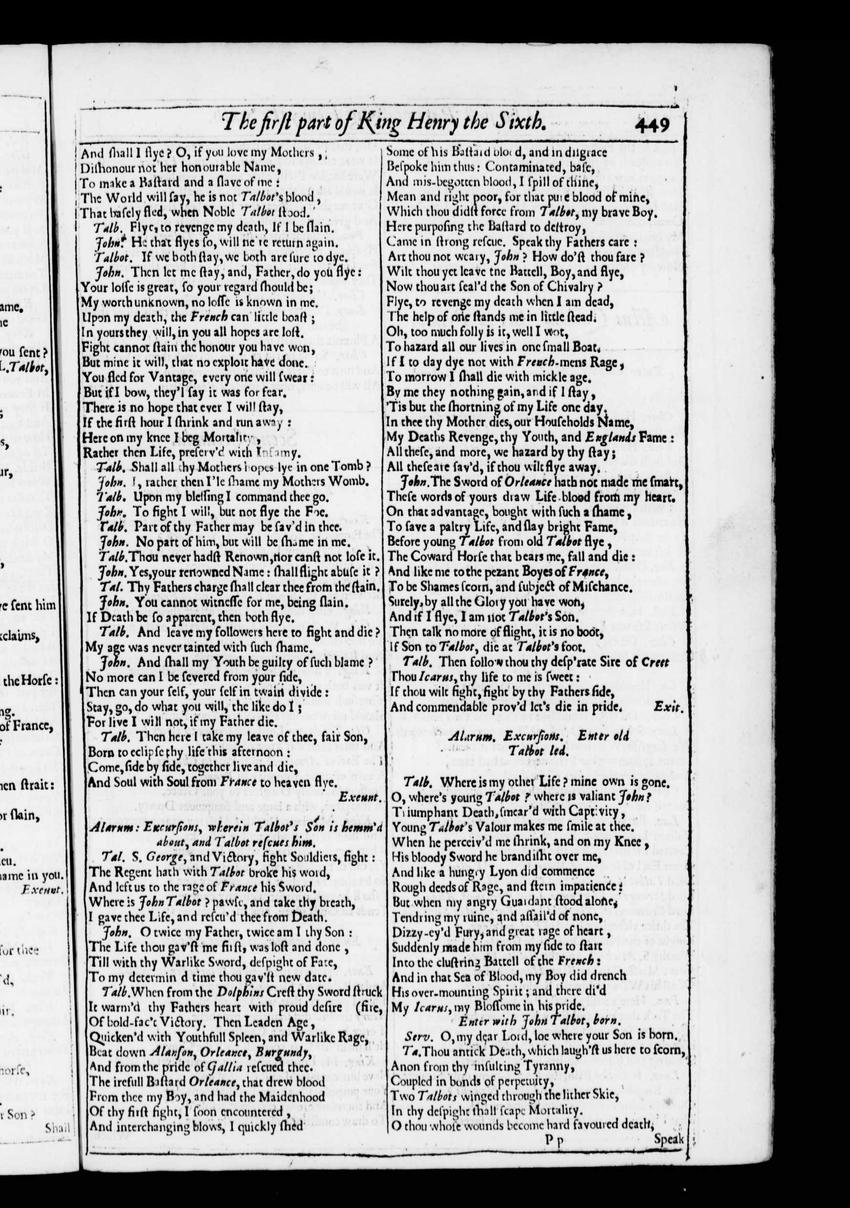 ame.
you sent?
L. Talbot,
ve sent him
xclaims,
the Horse:
ng.
of France,
hen strait:
or slain,
ame in you.
Exeunt.
for thee
horse,
r Son?
Shall
The first part of King Henry the Sixth. 449
And shall I flye? O, if you love my Mothers,
Dishonour not her honourable Name,
To make a Bastard and a slave of me:
The World will say, he is not Talbot's blood,
That basely fled, when Noble Talbot stood.
Talb. Flye, to revenge my death, If I be slain.
John. He that flyes so, will ne're return again.
Talbot. If we both stay, we both are sure to dye.
John. Then let me stay, and, Father, do you flye:
Your losse is great, so your regard should be;
My worth unknown, no losse is known in me.
Upon my death, the French can little boast;
In yours they will, in you all hopes are lost.
Fight cannot stain the honour you have won,
But mine it will, that no exploit have done.
You fled for Vantage, every one will swear:
But if I bow, they'l say it was for fear.
There is no hope that ever I will stay,
If the first hour I shrink and run away:
Here on my knee I beg Mortality,
Rather then Life, preserv'd with Infamy.
Talb. Shall all thy Mothers hopes lye in one Tomb?
John. I, rather then I'le shame my Mothers Womb.
Talb. Upon my blessing I command thee go.
John. To fight I will, but not flye the Foe.
Talb. Part of thy Father may be sav'd in thee.
John. No part of him, but will be shame in me.
Talb. Thou never hadst Renown, nor canst not lose it.
John. Yes, your renowned Name: shall flight abuse it?
Tal. Thy Fathers charge shall clear thee from the stain.
John. You cannot witnesse for me, being slain.
If Death be so apparent, then both flye.
Talb. And leave my followers here to fight and die?
My age was never tainted with such shame.
John. And shall my Youth be guilty of such blame?
No more can I be severed from your side,
Then can your self, your self in twain divide:
Stay, go, do what you will, the like do I;
For live I will not, if my Father die.
Talb. Then here I take my leave of thee, fair Son,
Born to eclipse thy life this afternoon:
Come, side by side, together live and die,
And Soul with Soul from France to heaven flye.
Exeunt.
Alarum: Excursions, wherein Talbot's Son is hemm'd
about, and Talbot rescues him.
Tal. S. George, and Victory, fight Souldiers, fight:
The Regent hath with Talbot broke his word,
And left us to the rage of France his Sword.
Where is John Talbot? pawse, and take thy breath,
I gave thee Life, and rescu'd thee from Death.
John. O twice my Father, twice am I thy Son:
The Life thou gav'st me first, was lost and done,
Till with thy Warlike Sword, despight of Fate,
To my determin d time thou gav'st new date.
Talb. When from the Dolphins Crest thy Sword struck
It warm'd thy Fathers heart with proud desire (fire,
Of bold-fac't Victory. Then Leaden Age,
Quicken'd with Youthfull Spleen, and Warlike Rage,
Beat down Alanson, Orleance, Burgundy,
And from the pride of Gallia rescued thee.
The irefull Bastard Orleance, that drew blood
From thee my Boy, and had the Maidenhood
Of thy first fight, I soon encountered,
And interchanging blows, I quickly shed
Some of his Bastard blood, and in disgrace
Bespoke him thus: Contaminated, base,
And mis-begotten blood, I spill of thine,
Mean and right poor, for that pure blood of mine,
Which thou didst force from Talbot, my brave Boy.
Here purposing the Bastard to destroy,
Came in strong rescue. Speak thy Fathers care:
Art thou not weary, John? How do'st thou fare?
Wilt thou yet leave the Battell, Boy, and flye,
Now thou art seal'd the Son of Chivalry?
Flye, to revenge my death when I am dead,
The help of one stands me in little stead.
Oh, too much folly is it, well I wot,
To hazard all our lives in one small Boat.
If I to day dye not with French-mens Rage,
To morrow I shall die with mickle age.
By me they nothing gain, and if I stay,
'Tis but the shortning of my Life one day.
In thee thy Mother dies, our Housholds Name,
My Deaths Revenge, thy Youth, and Englands Fame:
All these, and more, we hazard by thy stay;
All these are sav'd, if thou wilt flye away.
John. The Sword of Orleance hath not made me smart,
These words of yours draw Life-blood from my heart.
On that advantage, bought with such a shame,
To save a paltry Life, and slay bright Fame,
Before young Talbot from old Talbot flye,
The Coward Horse that bears me, fall and die:
And like me to the pezant Boyes of France,
To be Shames scorn, and subject of Mischance.
Surely, by all the Glory you have won,
And if I flye, I am not Talbot's Son.
Then talk no more of flight, it is no boot,
If Son to Talbot, die at Talbot's foot.
Talb. Then follow thou thy desp'rate Sire of Creet
Thou Icarus, thy life to me is sweet:
If thou wilt fight, fight by thy Fathers side,
And commendable prov'd let's die in pride. Exit.
Alarum. Excursions. Enter old
Talbot led.
Talb. Where is my other Life? mine own is gone.
O, where's young Talbot? where is valiant John?
Triumphant Death, smear'd with Captivity,
Young Talbot's Valour makes me smile at thee.
When he perceiv'd me shrink, and on my Knee,
His bloody Sword he brandisht over me,
And like a hungry Lyon did commence
Rough deeds of Rage, and stern impatience:
But when my angry Guardant stood alone,
Tendring my ruine, and assail'd of none,
Dizzy-ey'd Fury, and great rage of heart,
Suddenly made him from my side to start
Into the clustring Battell of the French:
And in that Sea of Blood, my Boy did drench
His over-mounting Spirit; and there di'd
My Icarus, my Blossome in his pride.
Enter with John Talbot, born.
Serv. O, my dear Lord, loe where your Son is born.
Ta. Thou antick Death, which laugh'st us here to scorn,
Anon from thy insulting Tyranny,
Coupled in bonds of perpetuity,
Two Talbots winged through the lither Skie,
In thy despight shall scape Mortality.
O thou whose wounds become hard favoured death,
P p Speak